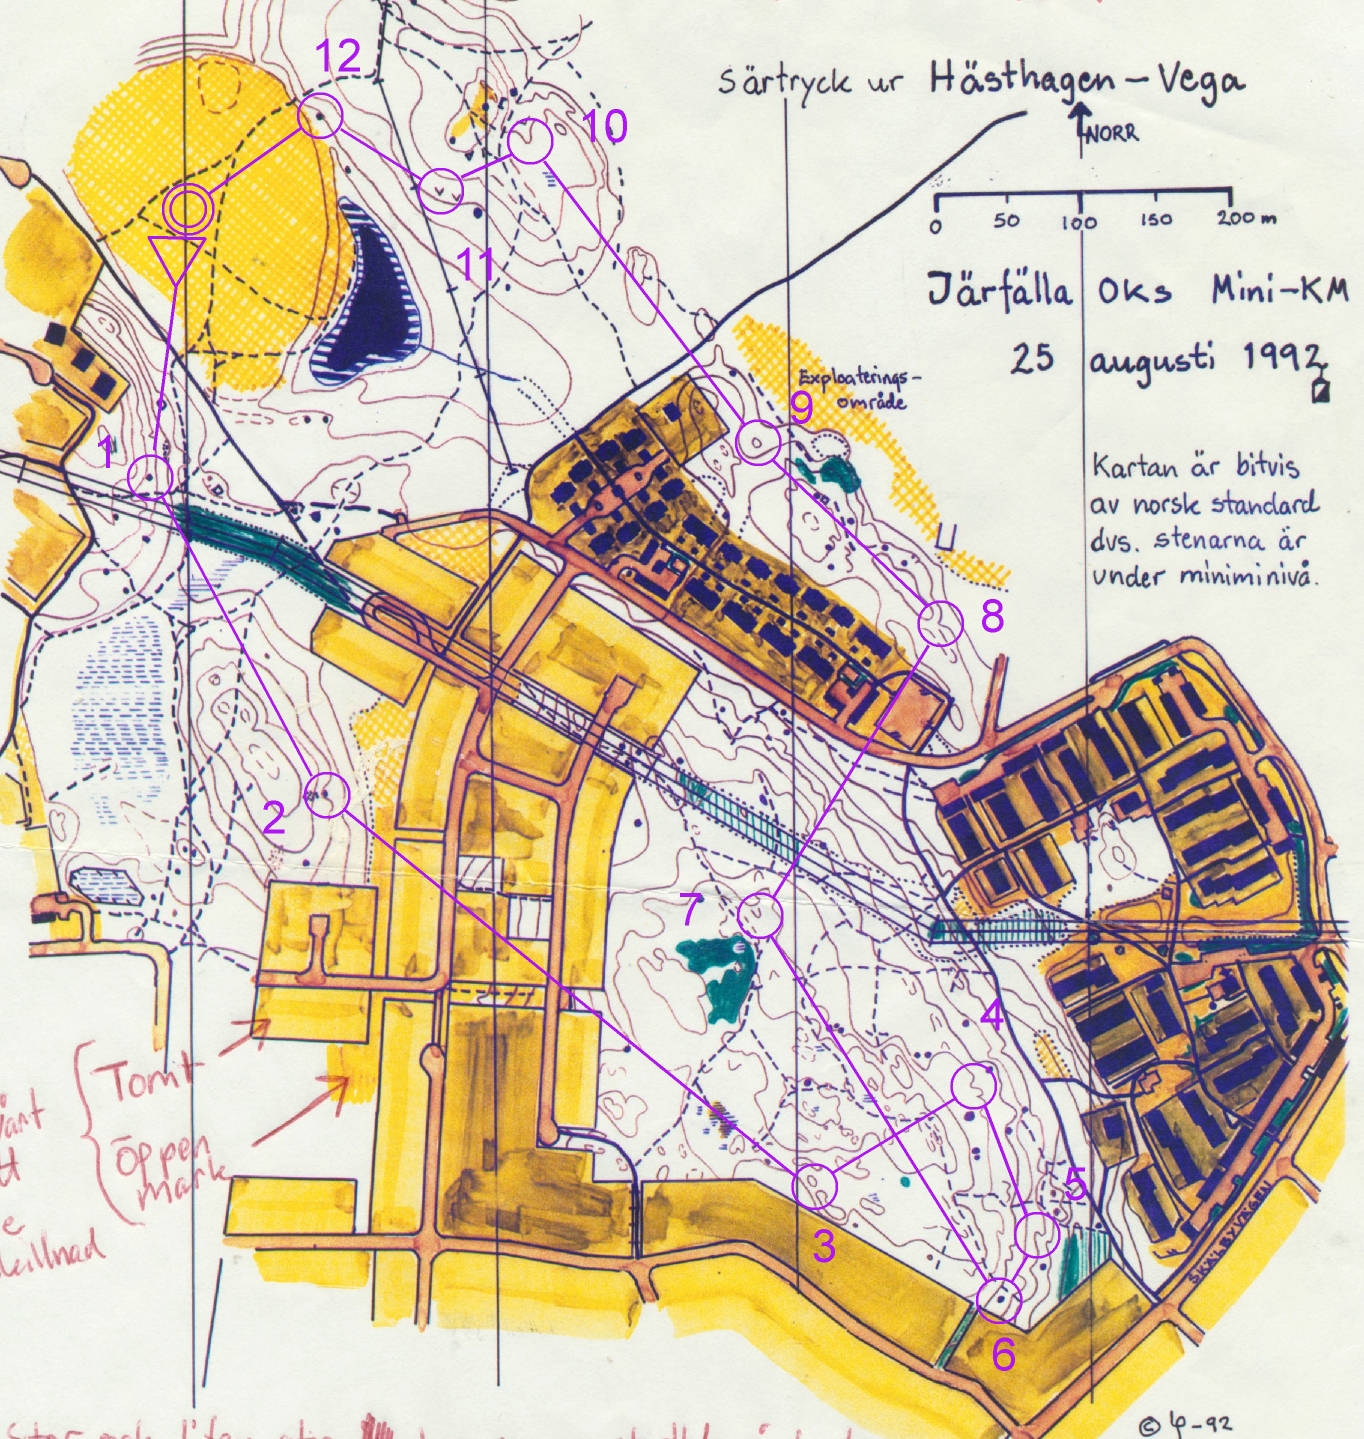 12
Särtryck ur Hästhagen-Vega
10
NORR
0 50 100 150 200 m
11
Järfälla OKs Mini-KM
25 augusti 1992
Exploaterings-
område
9
1
Kartan är bitvis
av norsk standard
dvs. stenarna är
under miniminivå.
8
2
7
4
Tomt
Öppen
mark
5
3
SKÄLBYVÄGEN
6
© φ-92